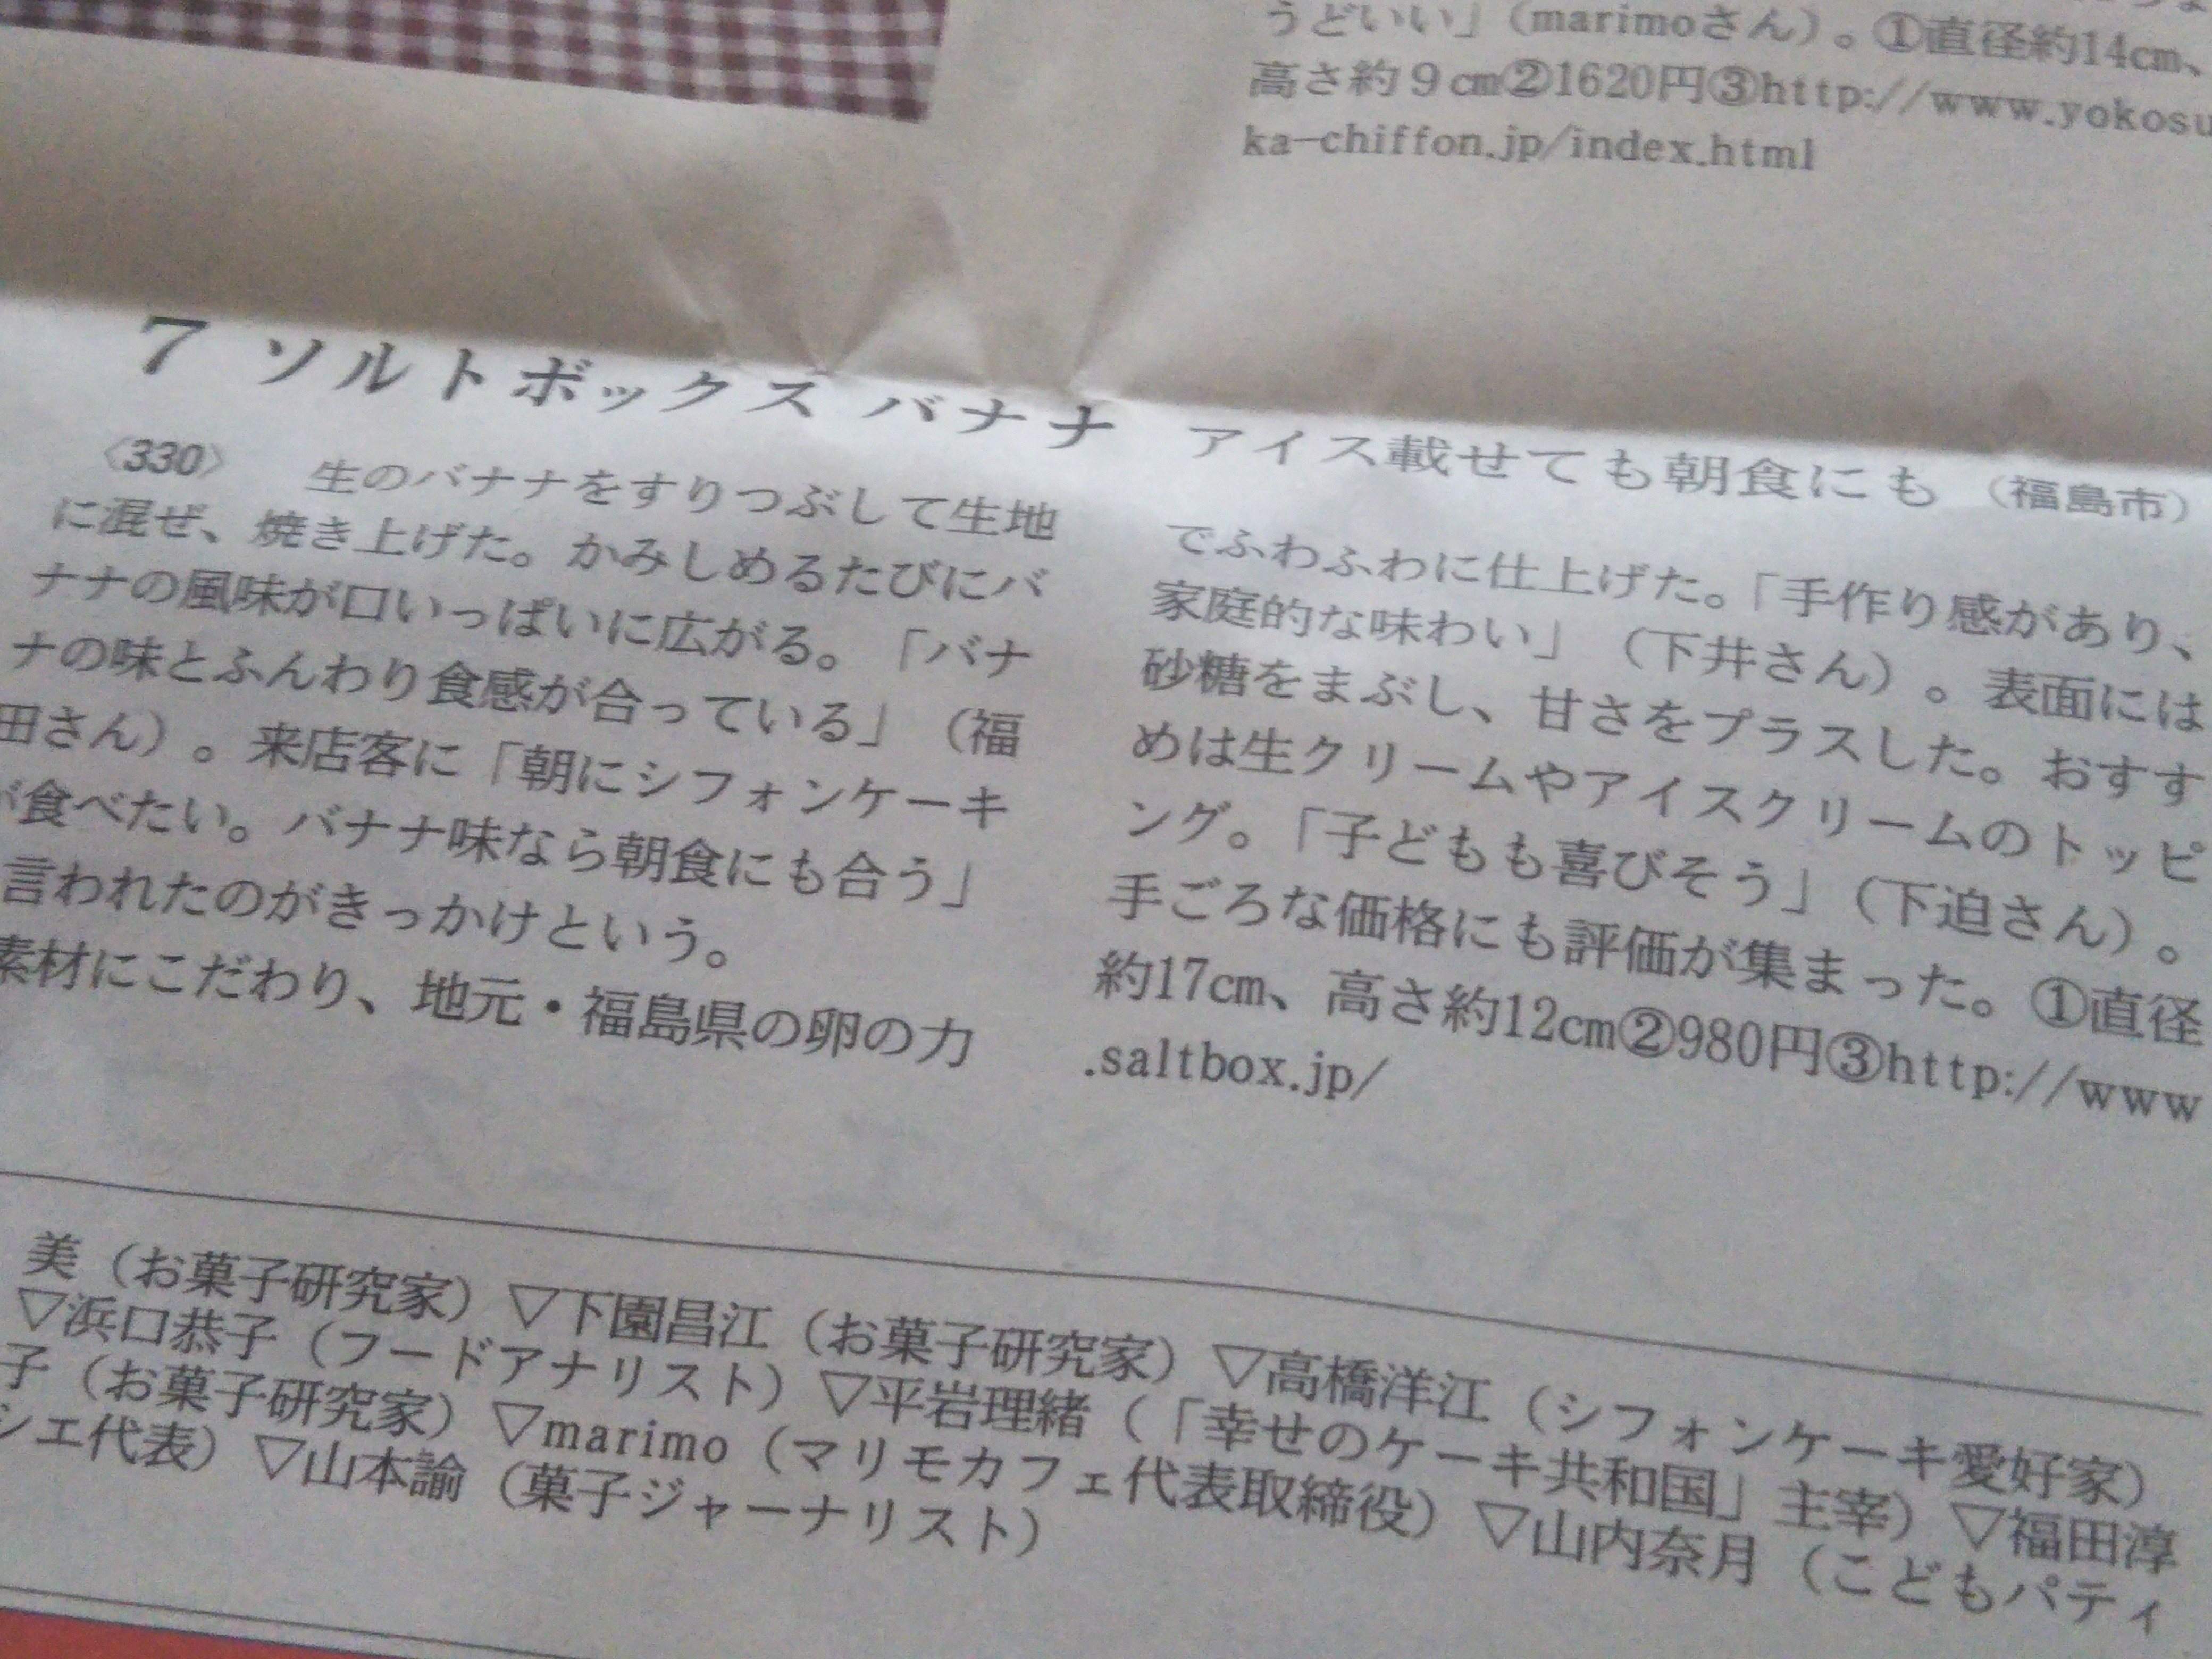 うどいい」（marimoさん）。①直径約14cm、
高さ約９cm②1620円③http://www.yokosu
ka-chiffon.jp/index.html
7 ソルトボックス バナナ アイス載せても朝食にも（福島市）
〈330〉 生のバナナをすりつぶして生地
に混ぜ、焼き上げた。かみしめるたびにバ
ナナの風味が口いっぱいに広がる。「バナ
ナの味とふんわり食感が合っている」（福
田さん）。来店客に「朝にシフォンケーキ
が食べたい。バナナ味なら朝食にも合う」
言われたのがきっかけという。
素材にこだわり、地元・福島県の卵の力
でふわふわに仕上げた。「手作り感があり、
家庭的な味わい」（下井さん）。表面には
砂糖をまぶし、甘さをプラスした。おすす
めは生クリームやアイスクリームのトッピ
ング。「子どもも喜びそう」（下迫さん）。
手ごろな価格にも評価が集まった。①直径
約17cm、高さ約12cm②980円③http://www
.saltbox.jp/
美（お菓子研究家）▽下園昌江（お菓子研究家）▽高橋洋江（シフォンケーキ愛好家）
▽浜口恭子（フードアナリスト）▽平岩理緒（「幸せのケーキ共和国」主宰）▽福田淳
子（お菓子研究家）▽marimo（マリモカフェ代表取締役）▽山内奈月（こどもパティ
シエ代表）▽山本諭（菓子ジャーナリスト）